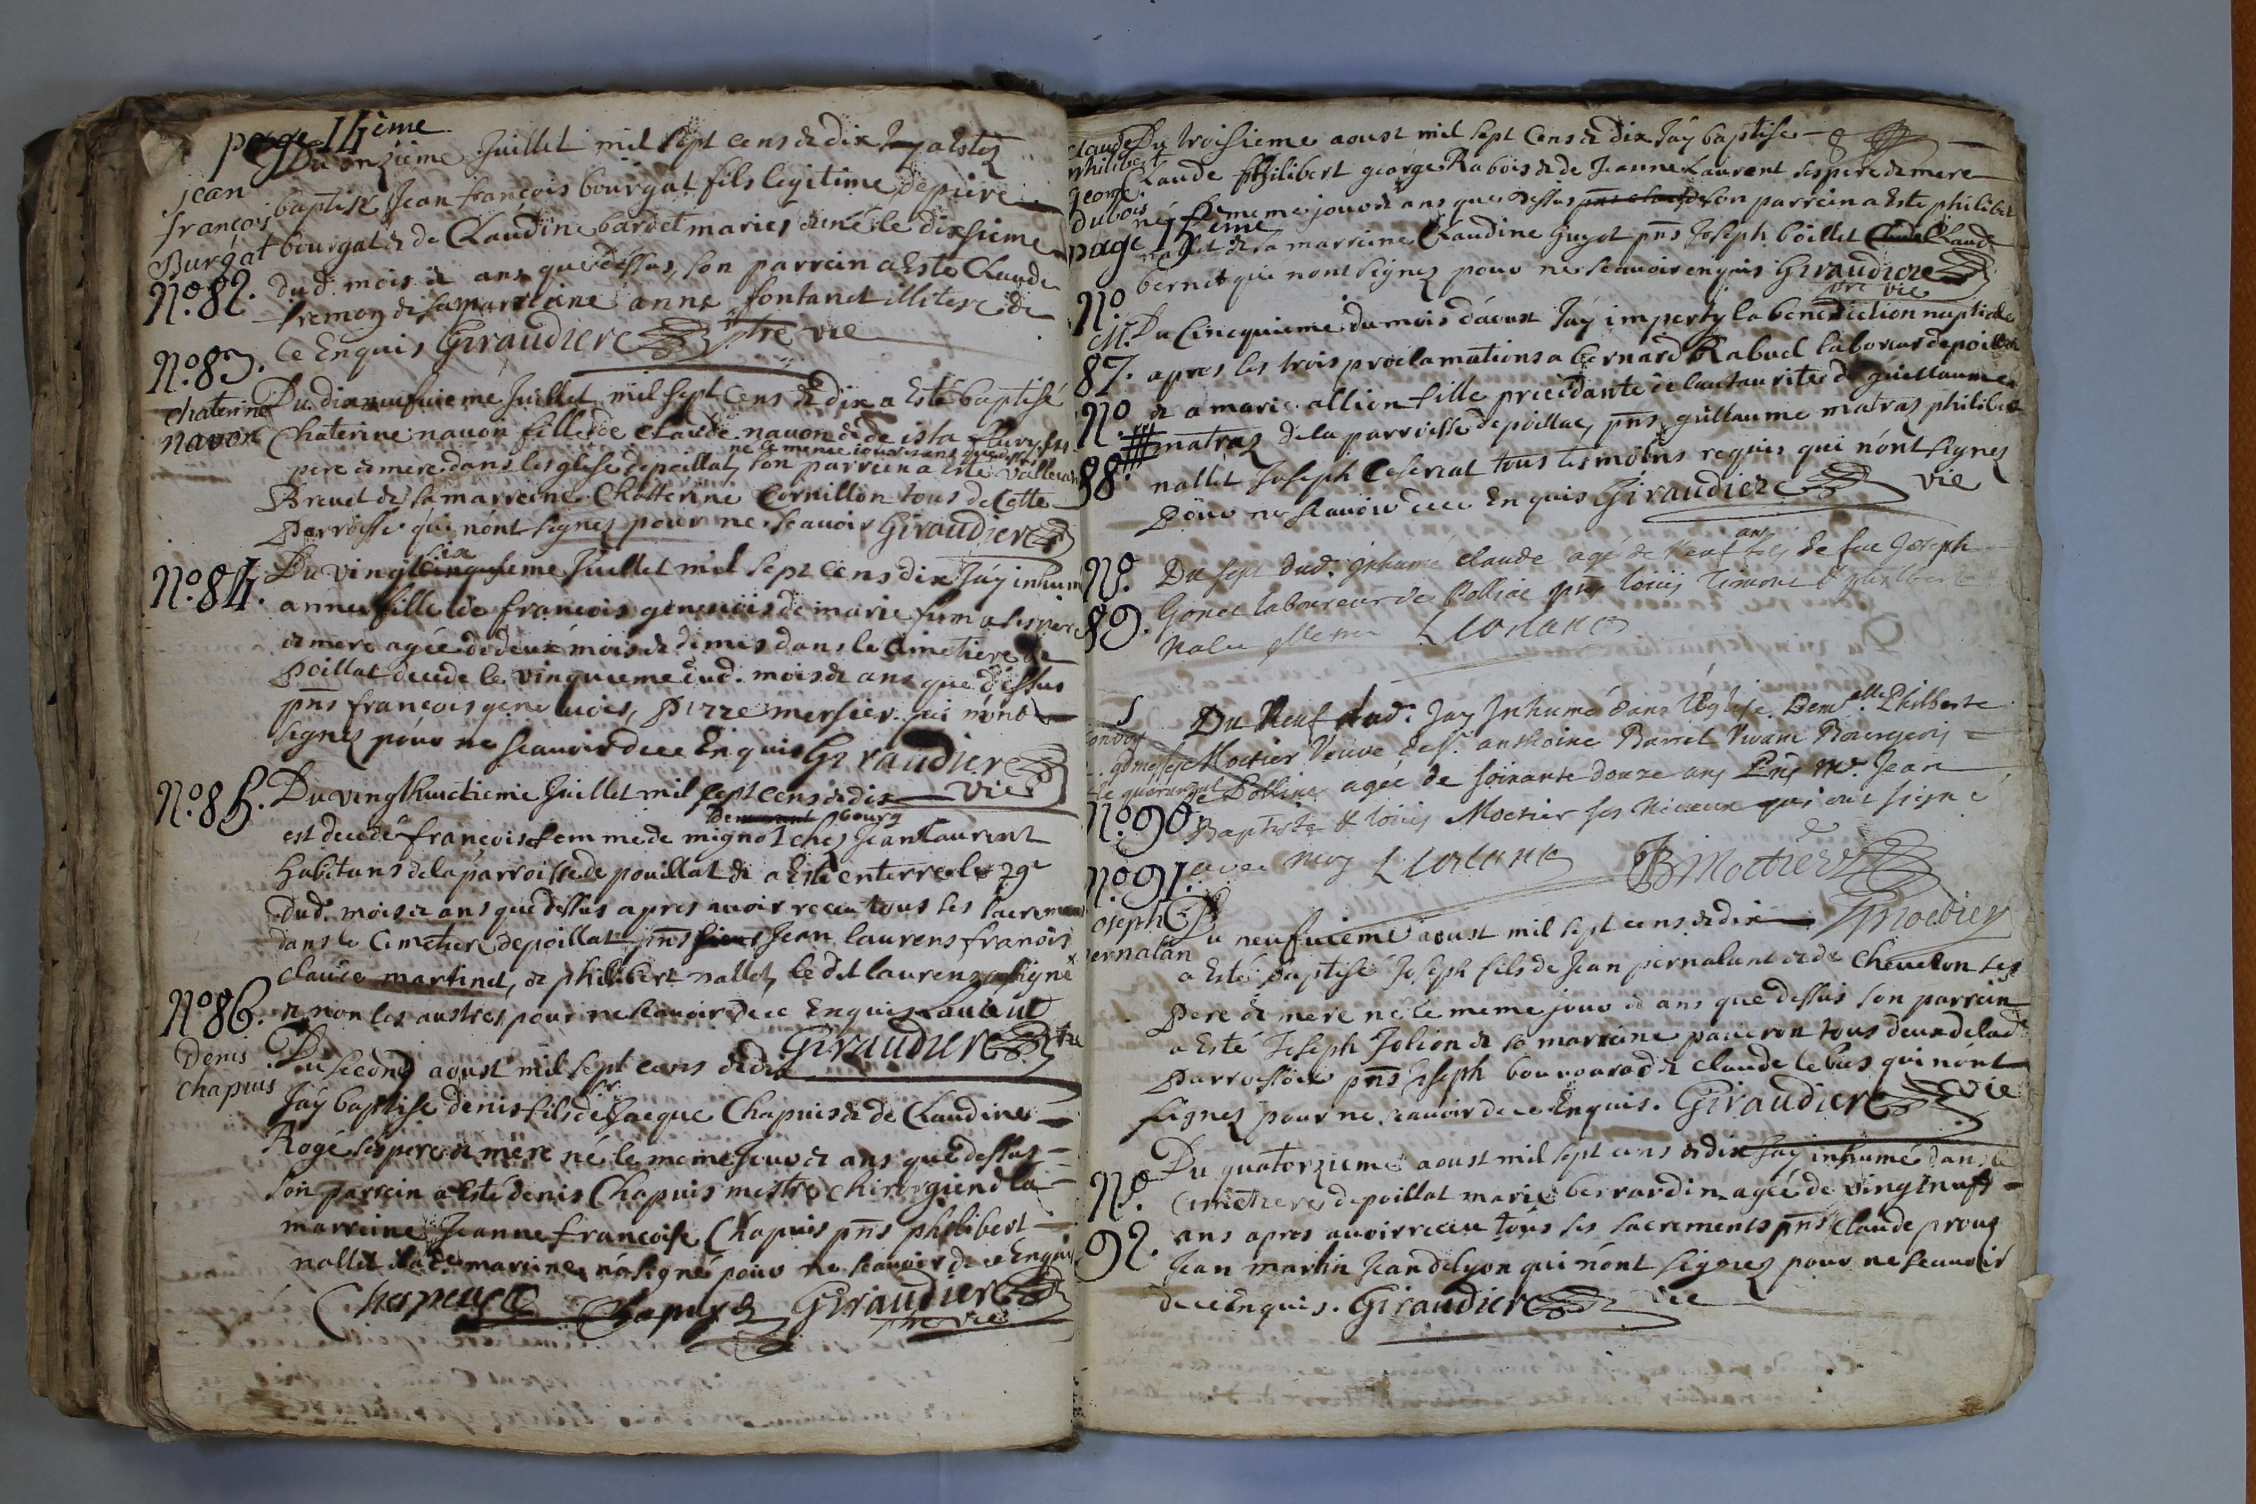 page 14ème
Du onzième Juillet mil sept cens & dix Jay a Estez
Jean
françois
Burgat
baptisé Jean françois bourgat fils legitime de pierre
bourgat & de Claudine bardet maries & né le dixsieme
N.º 82.
dud. mois & ans que dessus, son parrein a Esté Claude
tremoy & sa marreine anne fontanet illitere de
ce Enquis Giraudiere ptre vie
N.º 83.
Du dixneufuieme Juillet mil sept cens & dix a Esté baptisé
Chaterine
navon
Chaterine navon fille de Claude navon & de ista fleury ses
né le meme jour & ans que dessus
pere & mere dans leglise de poillat, son parrein a Este
Brevet & sa marreine Chatterine Cornillon tous de Cette
Parroisse qui n'ont signez pour ne sceauoir Giraudiere
N.º 84.
six
Du vingtcinquieme Juillet mil sept cens dix Jáy inhumé
anne fille de françois genevois & marie fuma ses pere
& mere agée de deux mois & demis dans le Cimetiere de
Poillat decede le vinguieme dud. mois & ans que dessus
pns françois genevois, Pierre mersier qui n'ont
signez pour ne sceauoir de ce Enquis Giraudiere
vie
N.º 85.
Du vingthuictieme Juillet mil sept cens & dix
bourg
est decedé françoise femme de mignot ches Jean Laurent
habitans de la parroisse de pouillat & a Esté enterre le 29e
dud. mois & ans que dessus apres auoir receu tous les sacremens
dans le Cimetiere de poillat pns Jean laurens franois
claude martinet, & philibert nallet, le dit laurenz a signé
& non les austres pour ne sceauoir de ce Enquis Laurent
Giraudiere ptre
N.º 86.
Denis
Chapuis
Du second aoust mil sept cens & dix
Jáy baptisé denis fils de sr. Jacque Chapuis & de Claudine
Rogé ses pere & mere né le meme Jour & ans que dessus
son parrein a Esté denis Chapuis mestre chirurgien & la
marreine Jeanne françoise Chapuis pns philibert
nallet lad. marreine n'a signé pour ne sceauoir de ce Enquis
Chapuis Giraudiere
ptre vie
Claude
philibert
george
dubois
Du troisieme aoust mil sept cens & dix Jáy baptisé
Claude philibert george Rabois & de Jeanne Laurent ses pere & mere
né le meme jour & ans que dessus son parrein a Esté philibert
page 15ème
nallet & sa marreine Claudine Guyot pns Joseph boillet Claude
bernet qui nont signez pour ne sceauoir enquis Giraudiere
ptre vie
N.º
M.
87.
Du Cinequieme du mois d'áoust Jáy imperty la benediction nuptiale
apres les trois proclamations a bernard Rabuel laboreur de poillat
N.º
88.
& a marie allion fille precedante de lautaurite de guillaume
matras de la parroisse de poillat, pns guillaume matras philibert
nallet Joseph tous tesmoins requis qui n'ont signez
pour ne sceauoir de ce Enquis Giraudiere vie
N.º
89.
ans
Du sept dud. Inhumé claude agé de neuf fils de feu Joseph
Gonet laboureur de Polliac pns louis Timont & philberte
Du Neuf dud. Jay Inhumé dans l'Eglise Demlle Philberte
Moetier Veuve de sr. anthoine Barret Vivant Bourgeois
de Polliac agée de soixante douze ans Pns Mr. Jean
N.º 90.
Baptiste & louis Moetier ses Neveux qui ont signé
avec moy
JB Moetier
Moetier
N.º 91.
Joseph
pernalan
Du neufuieme aoust mil sept cens & dix
a Esté baptisé Joseph fils de Jean pernalant & de Chevelon ses
Pere & mere né le meme jour & ans que dessus son parrein
a Esté Joseph Jolion & sa marreine paneron tous deux de lad.
parroisse pns Joseph bouuourad & claude le bas qui n'ont
signez pour ne sceauoir de ce Enquis. Giraudiere vie
N.º
92.
Du quatorzieme aoust mil sept cens & dix Jáy inhumé dans le
Cimetiere de poillat marie berrardin agée de vingtneuf
ans apres auoir receu tous ses sacrements pns Claude proug
Jean martin Jean delyon qui n'ont signez pour ne sceauoir
de ce Enquis. Giraudiere vie